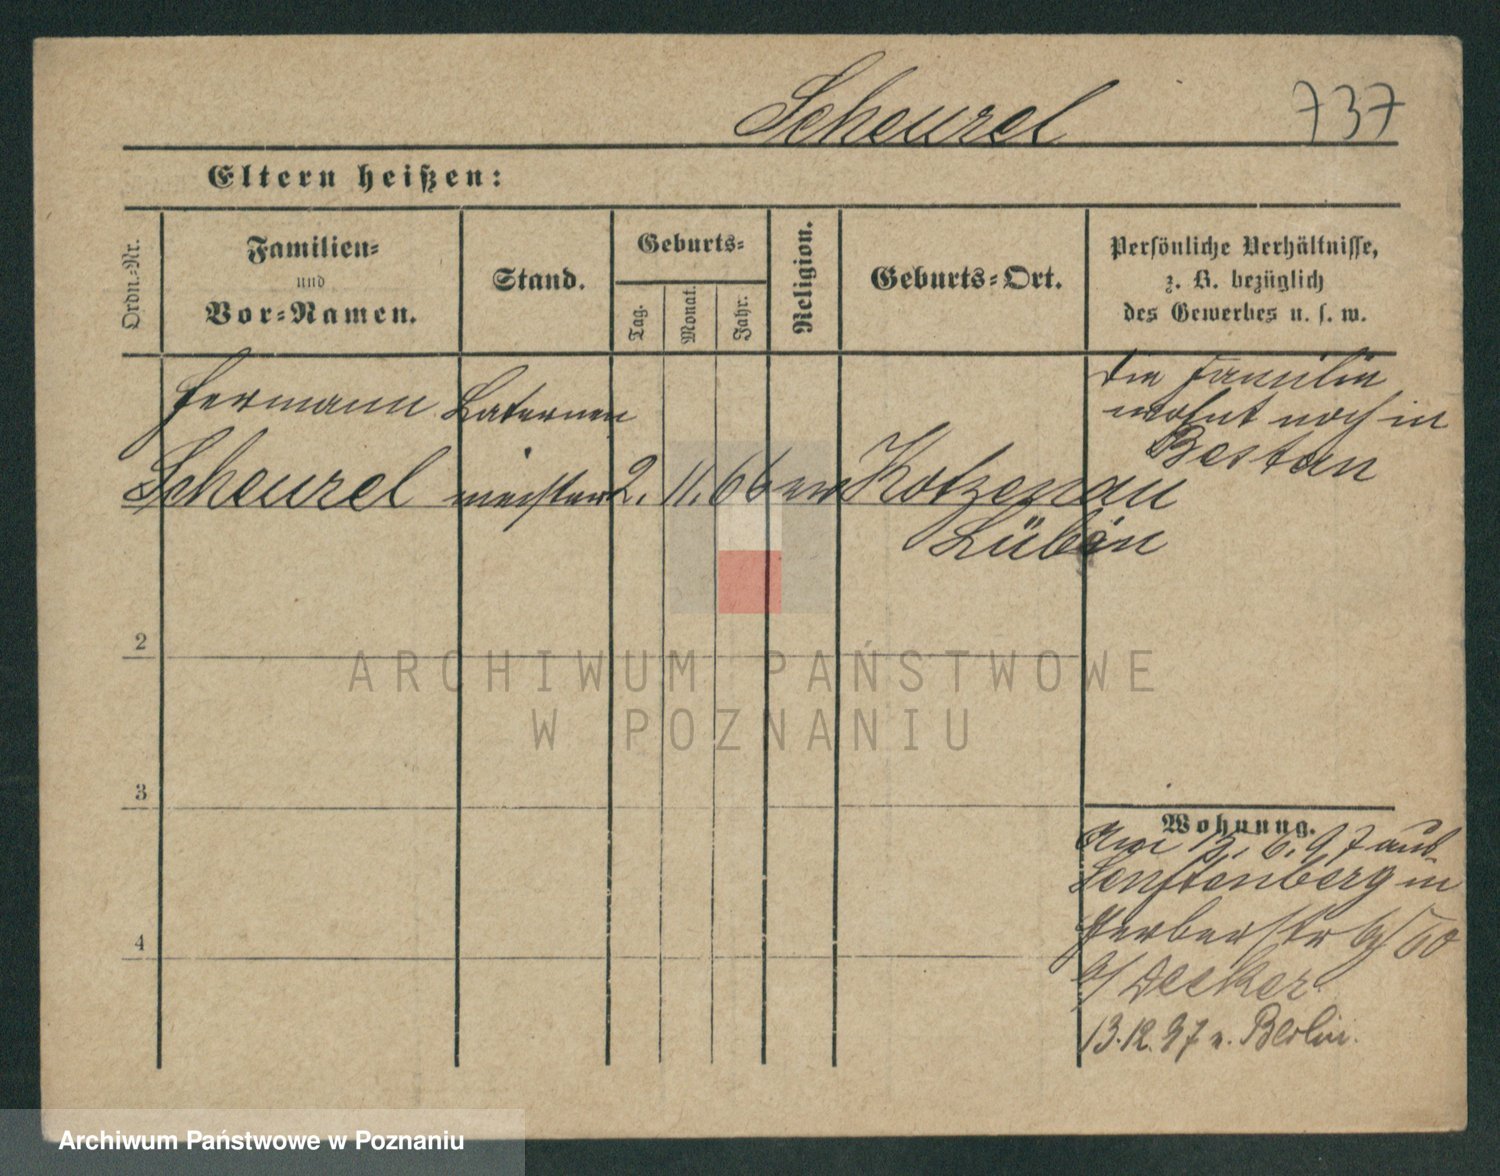 Scheurel 737
Eltern heißen:
Ordn.-Nr.
Familien-
und
Vor-Namen.
Stand.
Geburts-
Tag.
Monat.
Jahr.
Religion.
Geburts-Ort.
Persönliche Verhältnisse,
z. B. bezüglich
des Gewerbes u. s. w.
Hermann Laternen
Scheurel meister 2. 11. 66 ev Kotzenau
Lüben
die Familie
wohnt noch in
2
3
4
Wohnung.
Am 13. 6. 97 aus
Senftenberg in
b/ Decker
13.12.97 n. Berlin.
ARCHIWUM PAŃSTWOWE
W POZNANIU
Archiwum Państwowe w Poznaniu